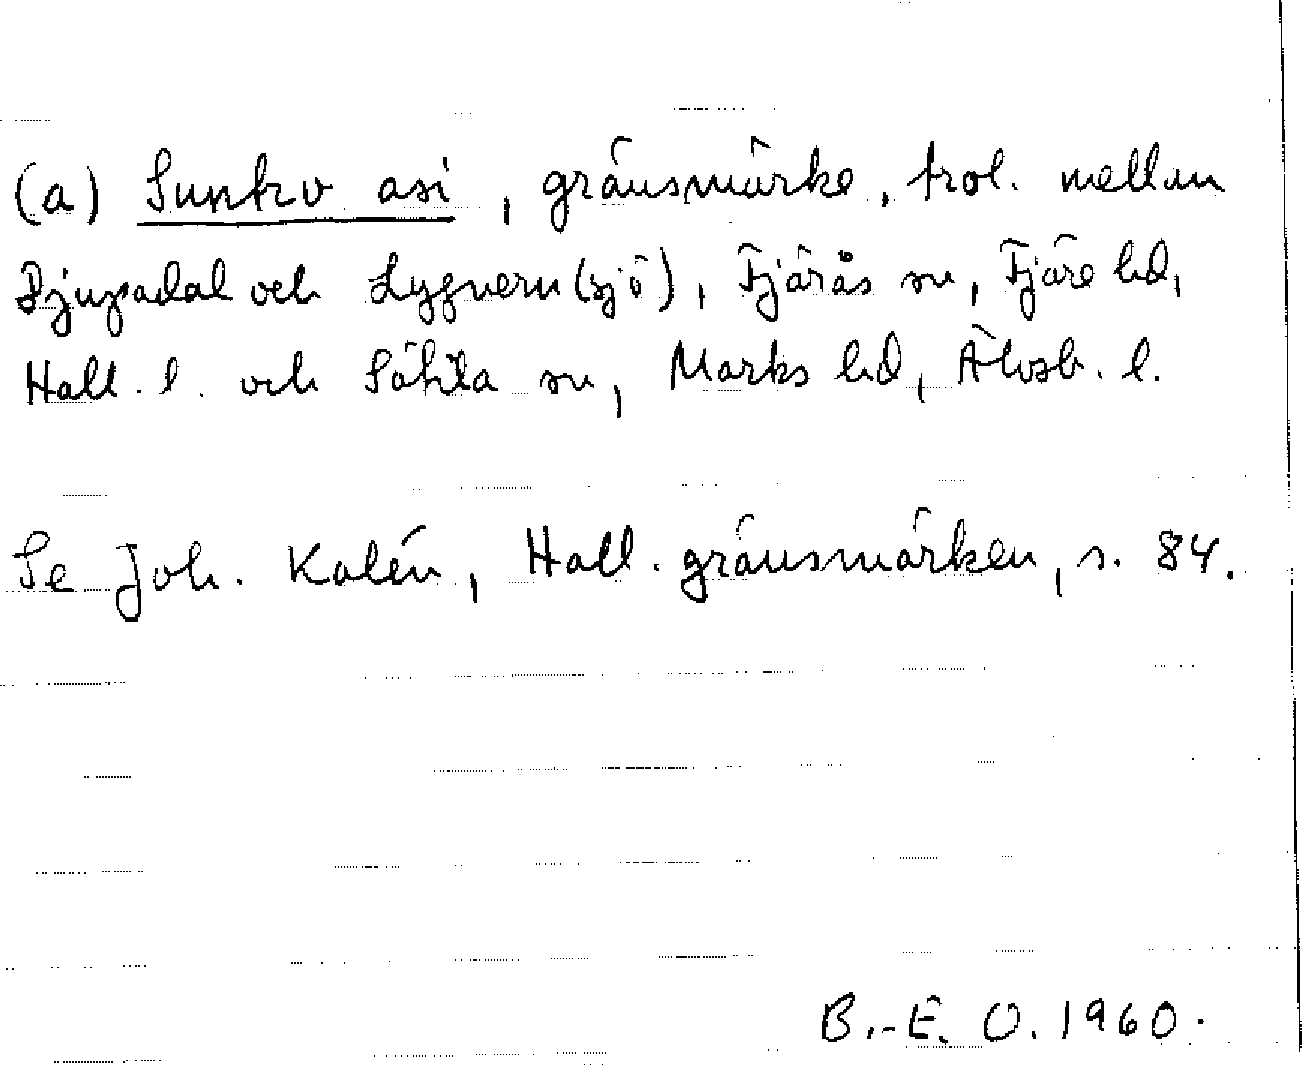 (a) Sunkro asi, gränsmärke, trol. mellan
Djupadal och Lygnern (sjö), Fjärås sn, Fjäre hd,
Hall. l. och Sätila sn, Marks hd, Älvsb. l.
Se Joh. Kalén, Hall. gränsmärken, s. 84.
B.-E. O. 1960.